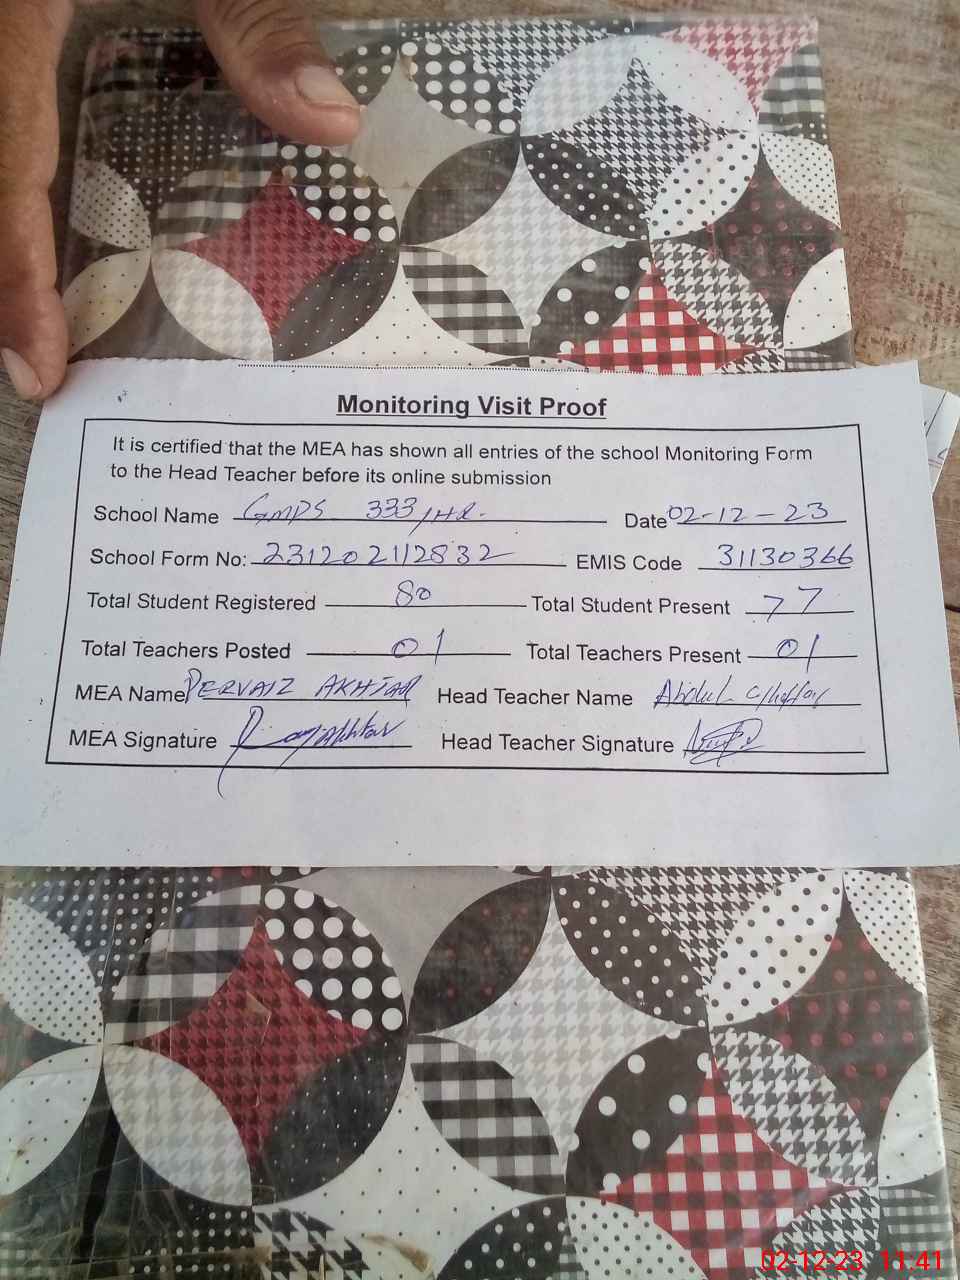 Monitoring Visit Proof
It is certified that the MEA has shown all entries of the school Monitoring Form
to the Head Teacher before its online submission
School Name GMPS 333/HR. Date 02-12-23
School Form No: 231202112832 EMIS Code 31130366
Total Student Registered 80 Total Student Present 77
Total Teachers Posted 01 Total Teachers Present 01
MEA Name PERVAIZ AKHTAR Head Teacher Name Abdul Ghaffar
MEA Signature Head Teacher Signature
02-12-23 11.41